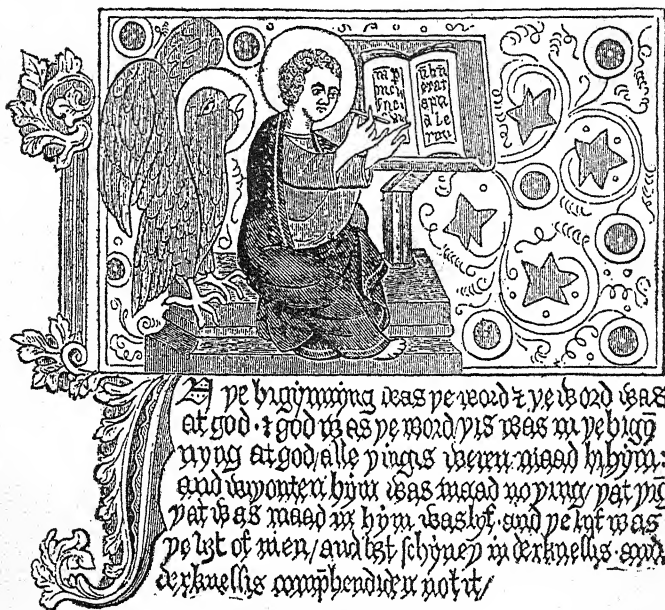 In þe bigynnyng was þe word ⁊ þe word was
at god · ⁊ god was þe word / þis was in þe bigyn̄
nyng at god / alle þingis weren maad bi hym :
and wiþouten hym was maad no þing / þat þīg
þat was maad in hym was lyf · and þe lyf was
þe liȝt of men / and liȝt schyneþ in derknessis · and
derknessis comp̄hendiden not it /